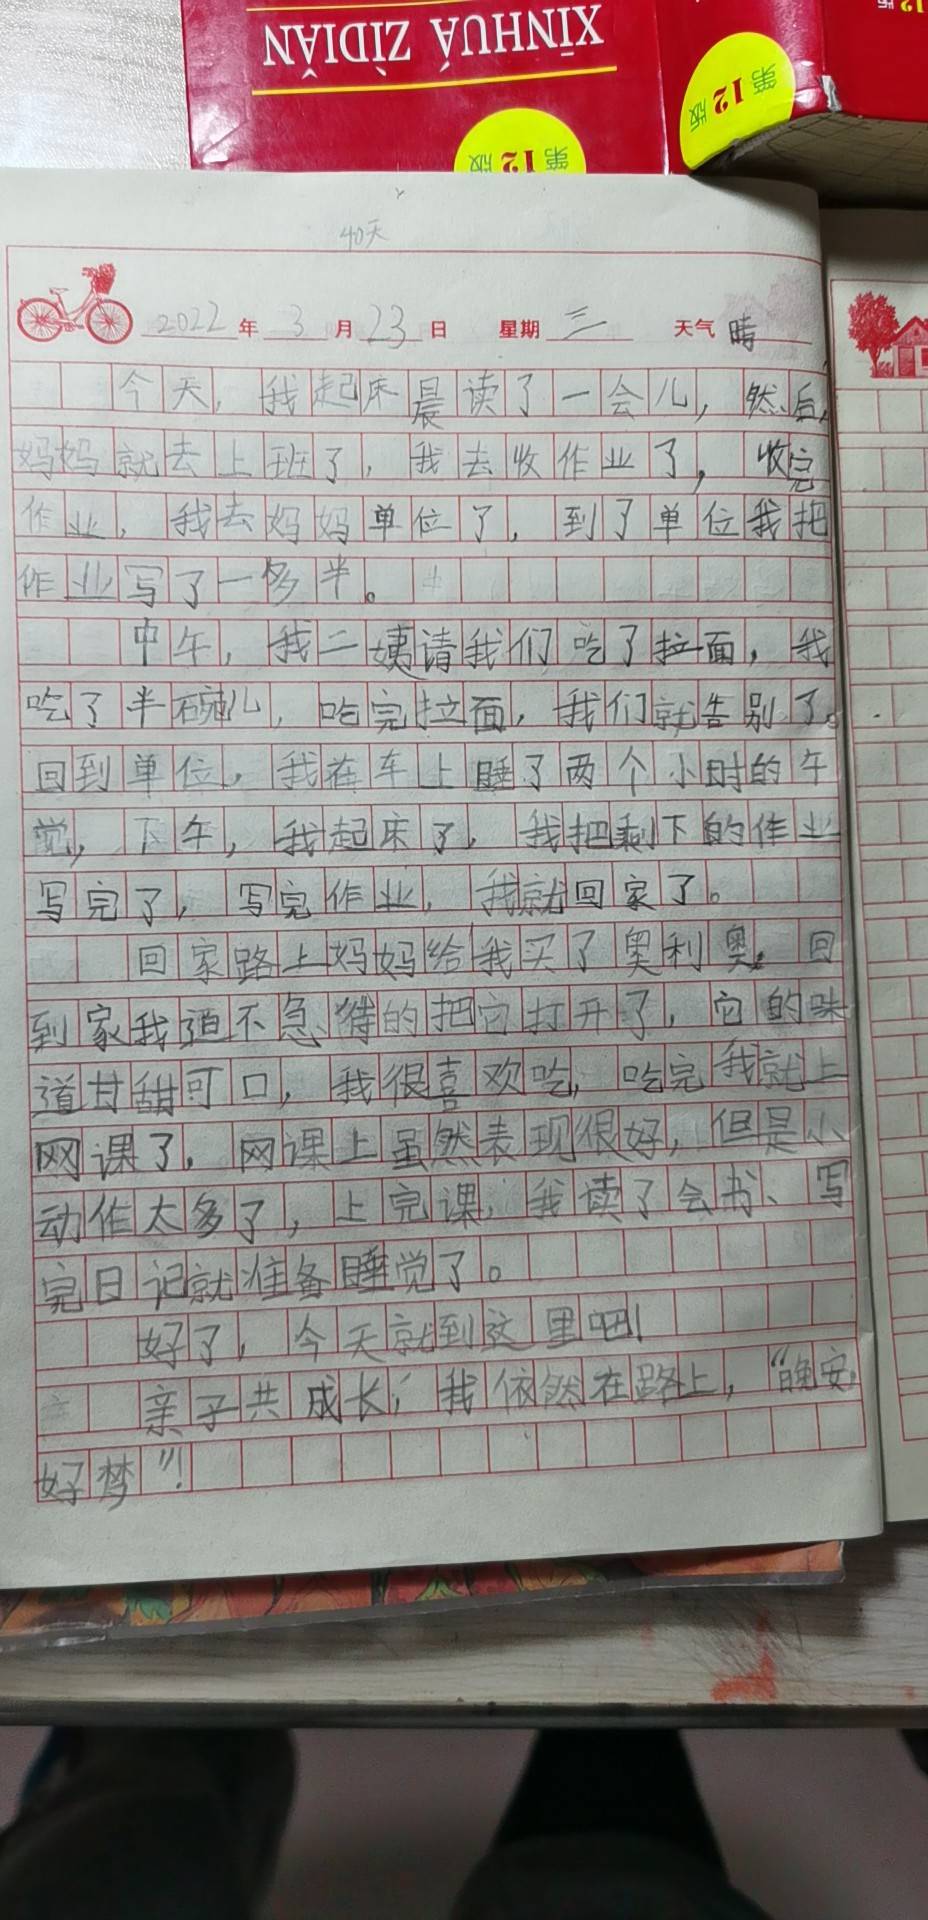 XĪNHUÁ ZÌDIǍN
第12版
第12版
40天
2022年3月23日 星期三 天气晴
今天,我起床晨读了一会儿,然后,
妈妈就去上班了,我去收作业了,收完
作业,我去妈妈单位了,到了单位我把
作业写了一多半。
中午,我二姨请我们吃了拉面,我
吃了半碗儿,吃完拉面,我们就告别了。
回到单位,我在车上睡了两个小时的午
觉,下午,我起床了,我把剩下的作业
写完了,写完作业,我就回家了。
回家路上妈妈给我买了奥利奥。回
到家我迫不急待的把它打开了,它的味
道甘甜可口,我很喜欢吃,吃完我就上
网课了,网课上虽然表现很好,但是小
动作太多了,上完课,我读了会书、写
完日记就准备睡觉了。
好了,今天就到这里吧!
亲子共成长,我依然在路上,“晚安,
好梦”!